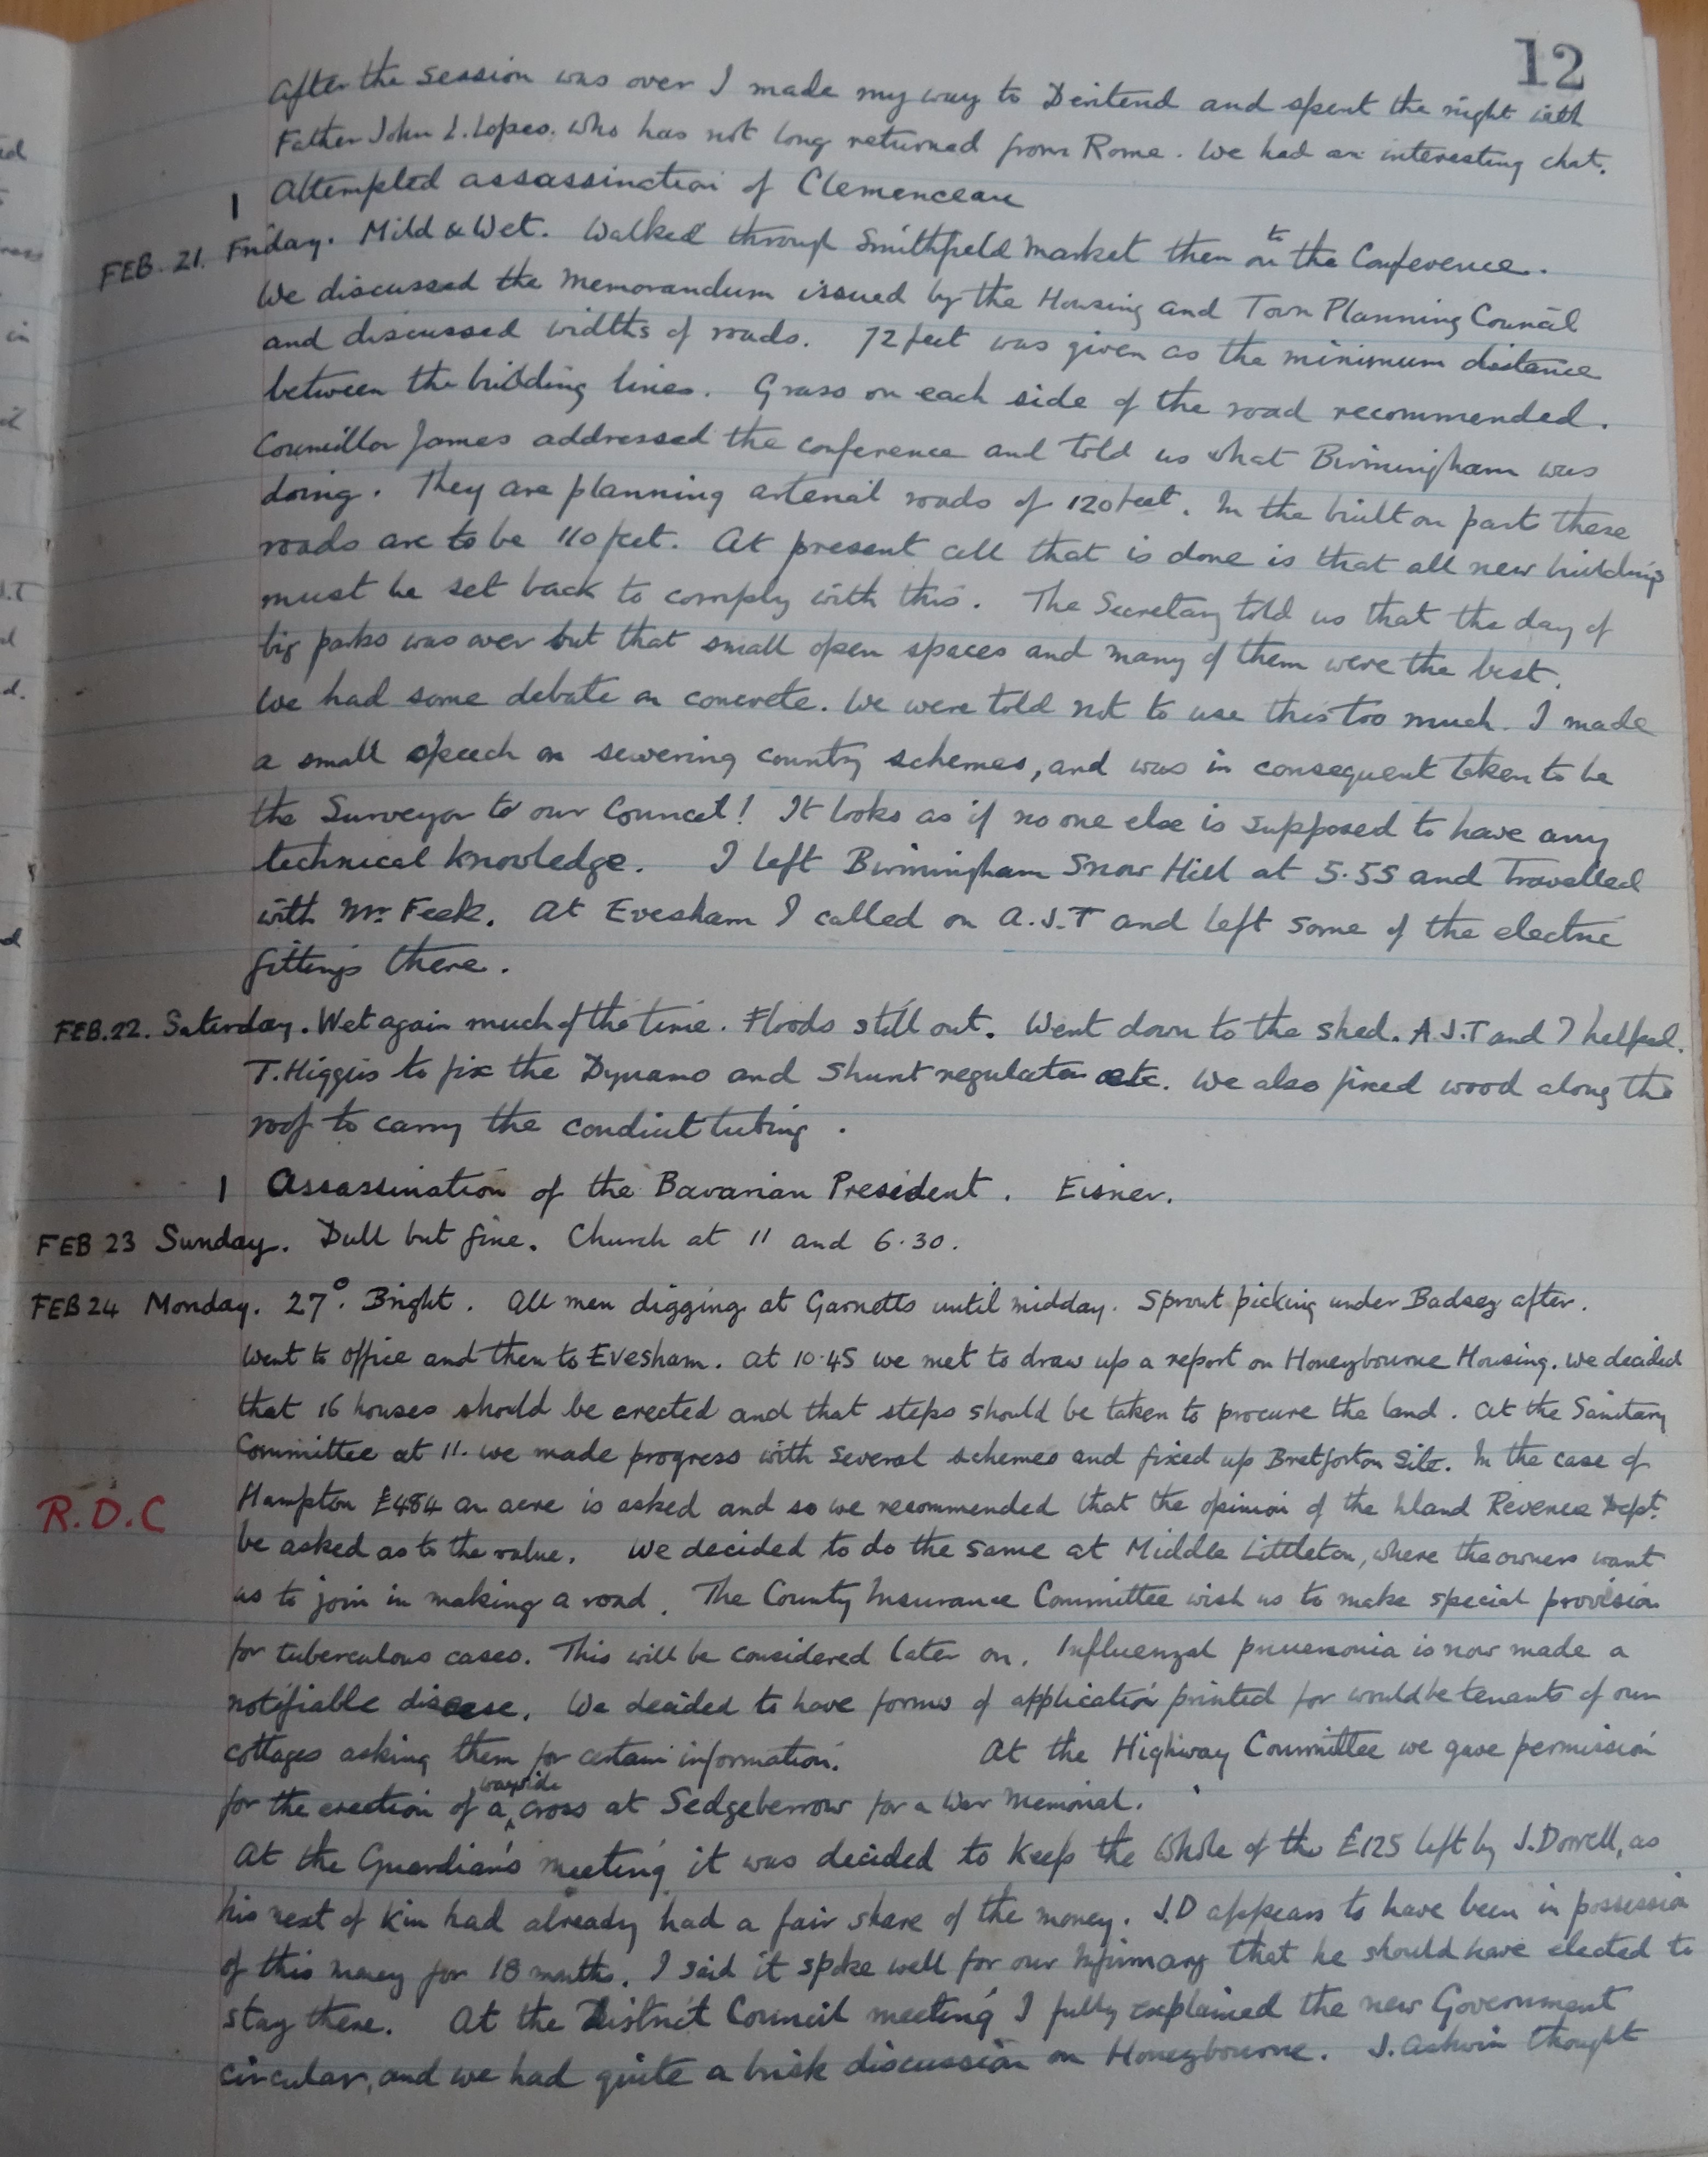 12
After the session was over I made my way to Deritend and spent the night with
Father John L. Lopes. who has not long returned from Rome. We had an interesting chat.
| Attempted assassination of Clemenceau
FEB. 21. Friday. Mild & Wet. Walked through Smithfield Market then on to the Conference.
We discussed the Memorandum issued by the Housing and Town Planning Council
and discussed widths of roads. 72 feet was given as the minimum distance
between the building lines. Grass on each side of the road recommended.
Councillor James addressed the conference and told us what Birmingham was
doing. They are planning arterial roads of 120 feet. In the built on parts these
roads are to be 110 feet. At present all that is done is that all new buildings
must be set back to comply with this. The Secretary told us that the day of
big parks was over but that small open spaces and many of them were the best.
We had some debate on concrete. We were told not to use this too much. I made
a small speech on sewering country schemes, and was in consequent taken to be
the Surveyor to our Council! It looks as if no one else is supposed to have any
technical knowledge. I left Birmingham Snow Hill at 5.55 and travelled
with Mr. Feek. At Evesham I called on A.J.T and left some of the electric
fittings there.
FEB. 22. Saturday. Wet again much of the time. Floods still out. Went down to the shed. A.J.T and I helped
T. Higgins to fix the Dynamo and Shunt regulator etc. We also fixed wood along the
roof to carry the conduit tubing.
| Assassination of the Bavarian President. Eisner.
FEB 23 Sunday. Dull but fine. Church at 11 and 6.30.
FEB 24 Monday. 27°. Bright. All men digging at Garnetts until midday. Sprout picking under Badsey after.
Went to office and then to Evesham. At 10.45 we met to draw up a report on Honeybourne Housing. We decided
that 16 houses should be erected and that steps should be taken to procure the land. At the Sanitary
Committee at 11. we made progress with several schemes and fixed up Bretforton Site. In the case of
R.D.C Hampton £484 an acre is asked and so we recommended that the opinion of the Inland Revenue Dept.
be asked as to the value. We decided to do the same at Middle Littleton, where the owners want
us to join in making a road. The County Insurance Committee wish us to make special provision
for tuberculous cases. This will be considered later on. Influenzal pneumonia is now made a
notifiable disease. We decided to have forms of application printed for would be tenants of our
cottages asking them for certain information. At the Highway Committee we gave permission
for the erection of a wayside cross at Sedgeberrow for a War Memorial.
At the Guardian's meeting it was decided to keep the whole of the £125 left by J. Dowell, as
his next of kin had already had a fair share of the money. J.D appears to have been in possession
of this money for 18 months. I said it spoke well for our Infirmary that he should have elected to
stay there. At the District Council meeting I fully explained the new Government
circular, and we had quite a brisk discussion on Honeybourne. J. Ashwin thought